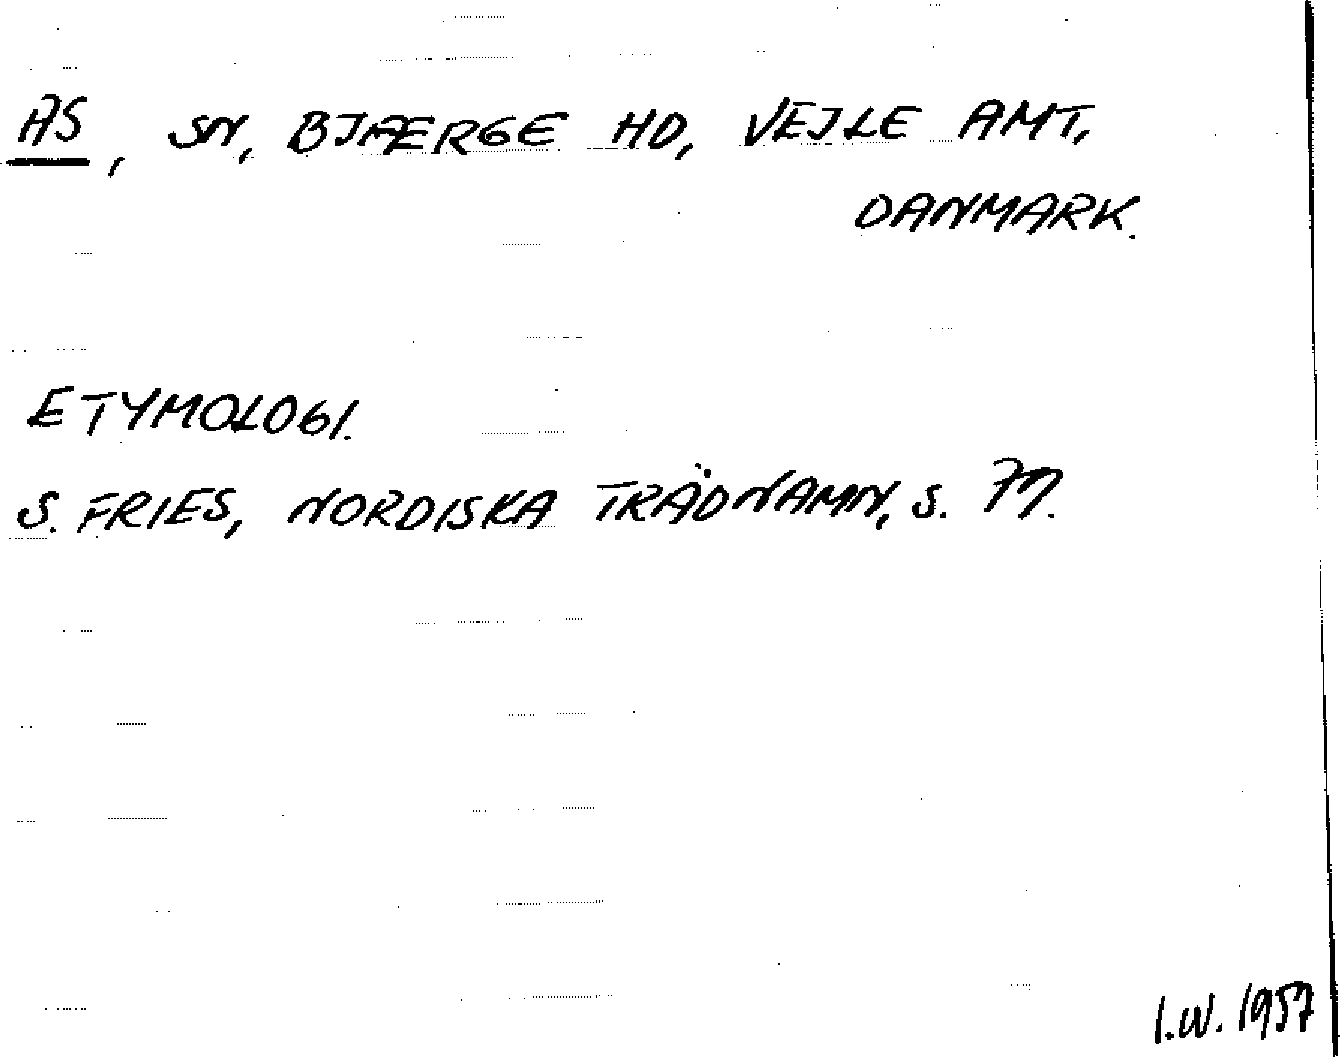 AS, SN, BJÆRGE HD, VEJLE AMT,
DANMARK.
ETYMOLOGI.
S. FRIES, NORDISKA TRÄDNAMN, S. 77.
I.W. 1957